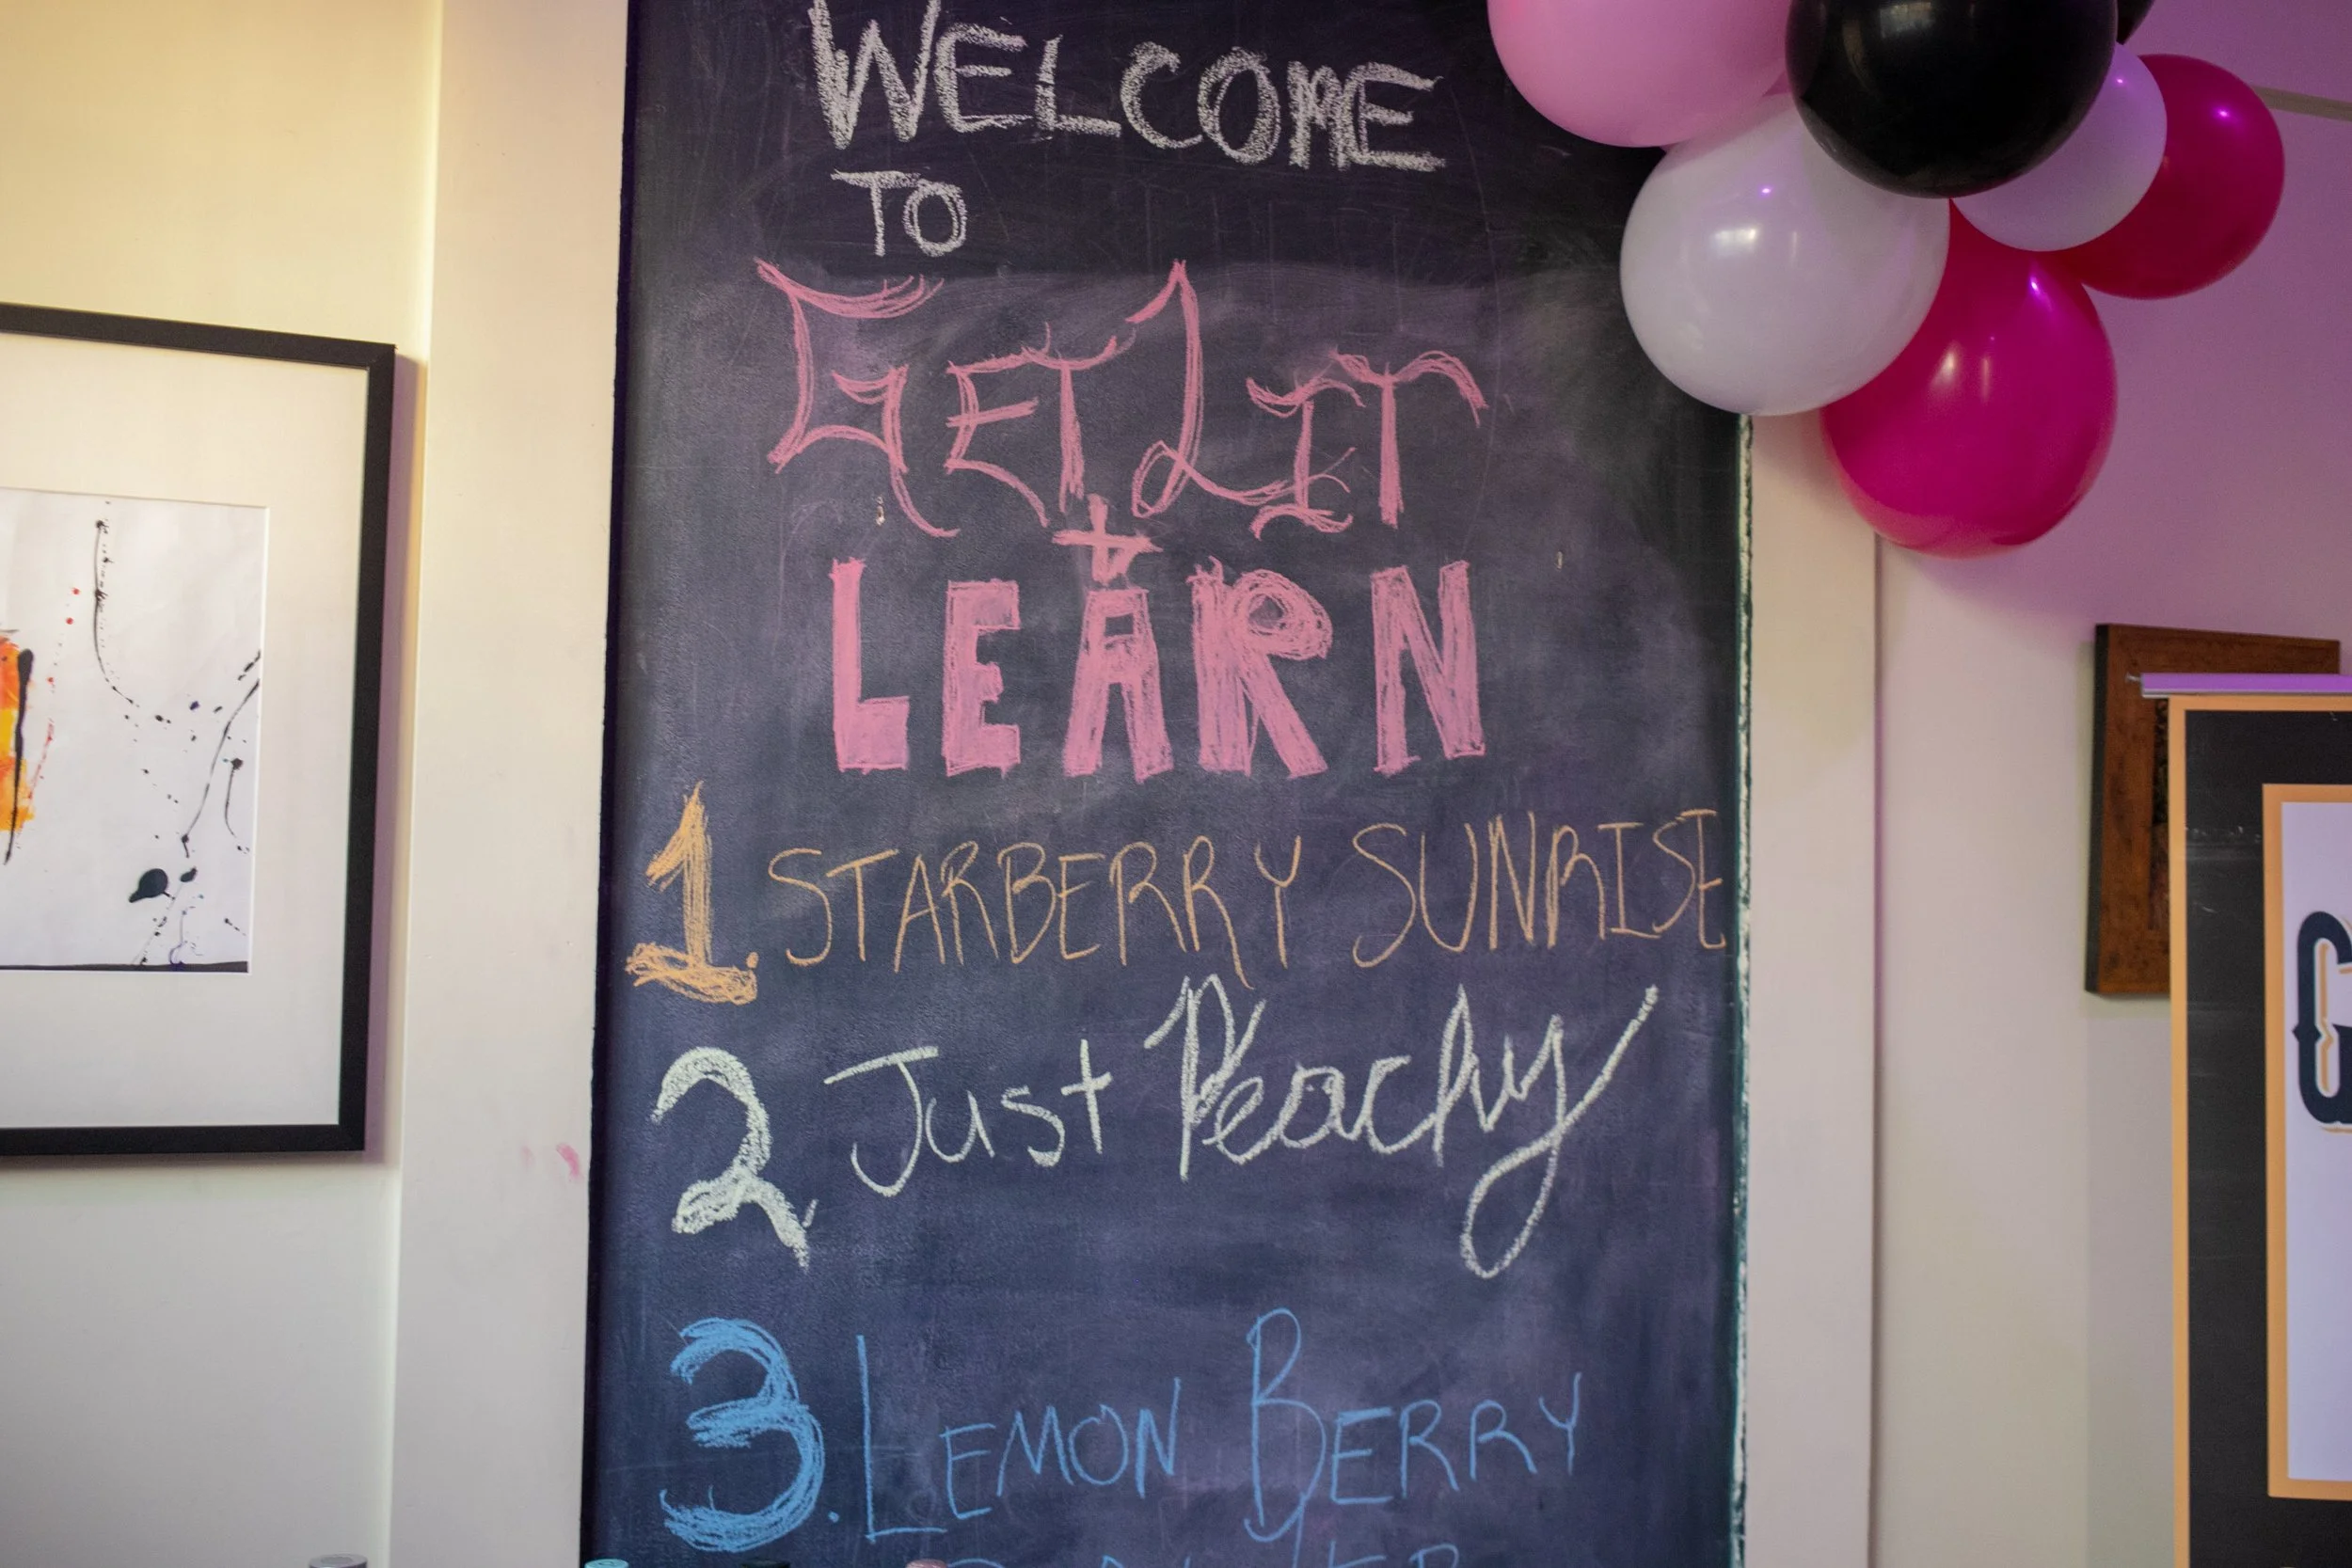 WELCOME
TO
GET LIT
+
LEARN
1. STARBERRY SUNRISE
2 Just Peachy
3. LEMON BERRY